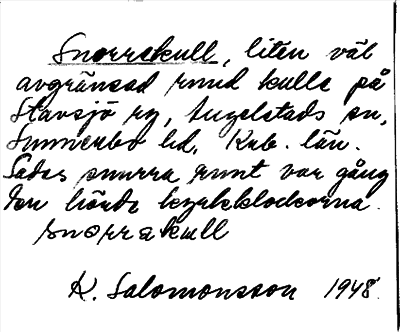 Snorrekull, liten väl
avgränsad rund kulle på
Stavsjö rg, Angelstads sn,
Sunnerbo hd, Krb. län.
Sades snurra runt var gång
den hörde kyrkklockorna.
snorrekull
K. Salomonsson 1948.